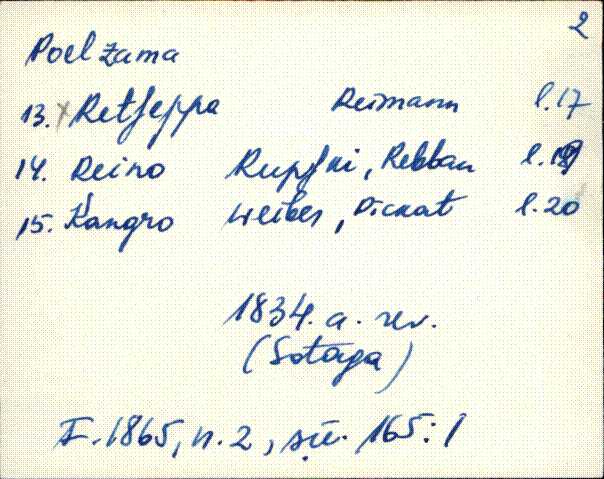 2
Poelzama
13. x Retseppa Reimann l.17
14. Reino Rupski, Rebban l.19
15. Kangro Weiber, Dicnat l.20
1834. a. rev.
(Sotaga)
F. 1865, n. 2, sü. 165:1